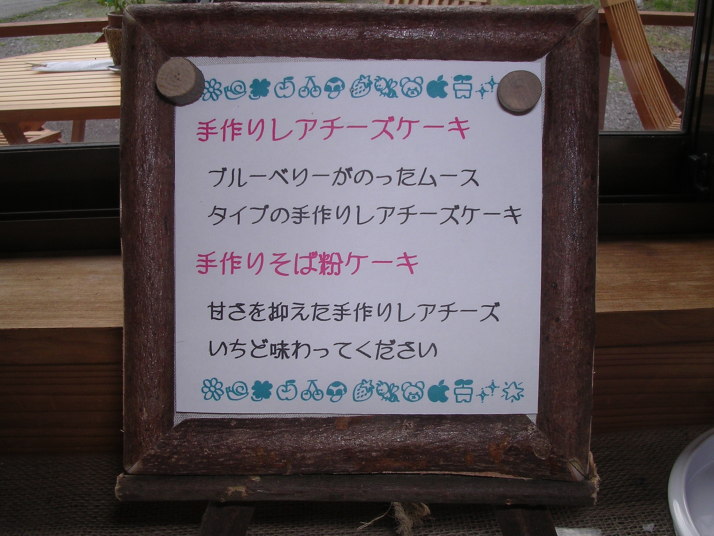 手作りレアチーズケーキ
ブルーベリーがのったムース
タイプの手作りレアチーズケーキ
手作りそば粉ケーキ
甘さを抑えた手作りレアチーズ
いちど味わってください